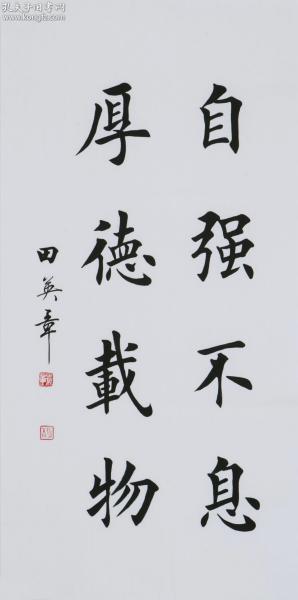 自强不息
厚德載物
田英章
孔夫子旧书网
www.kongfz.com